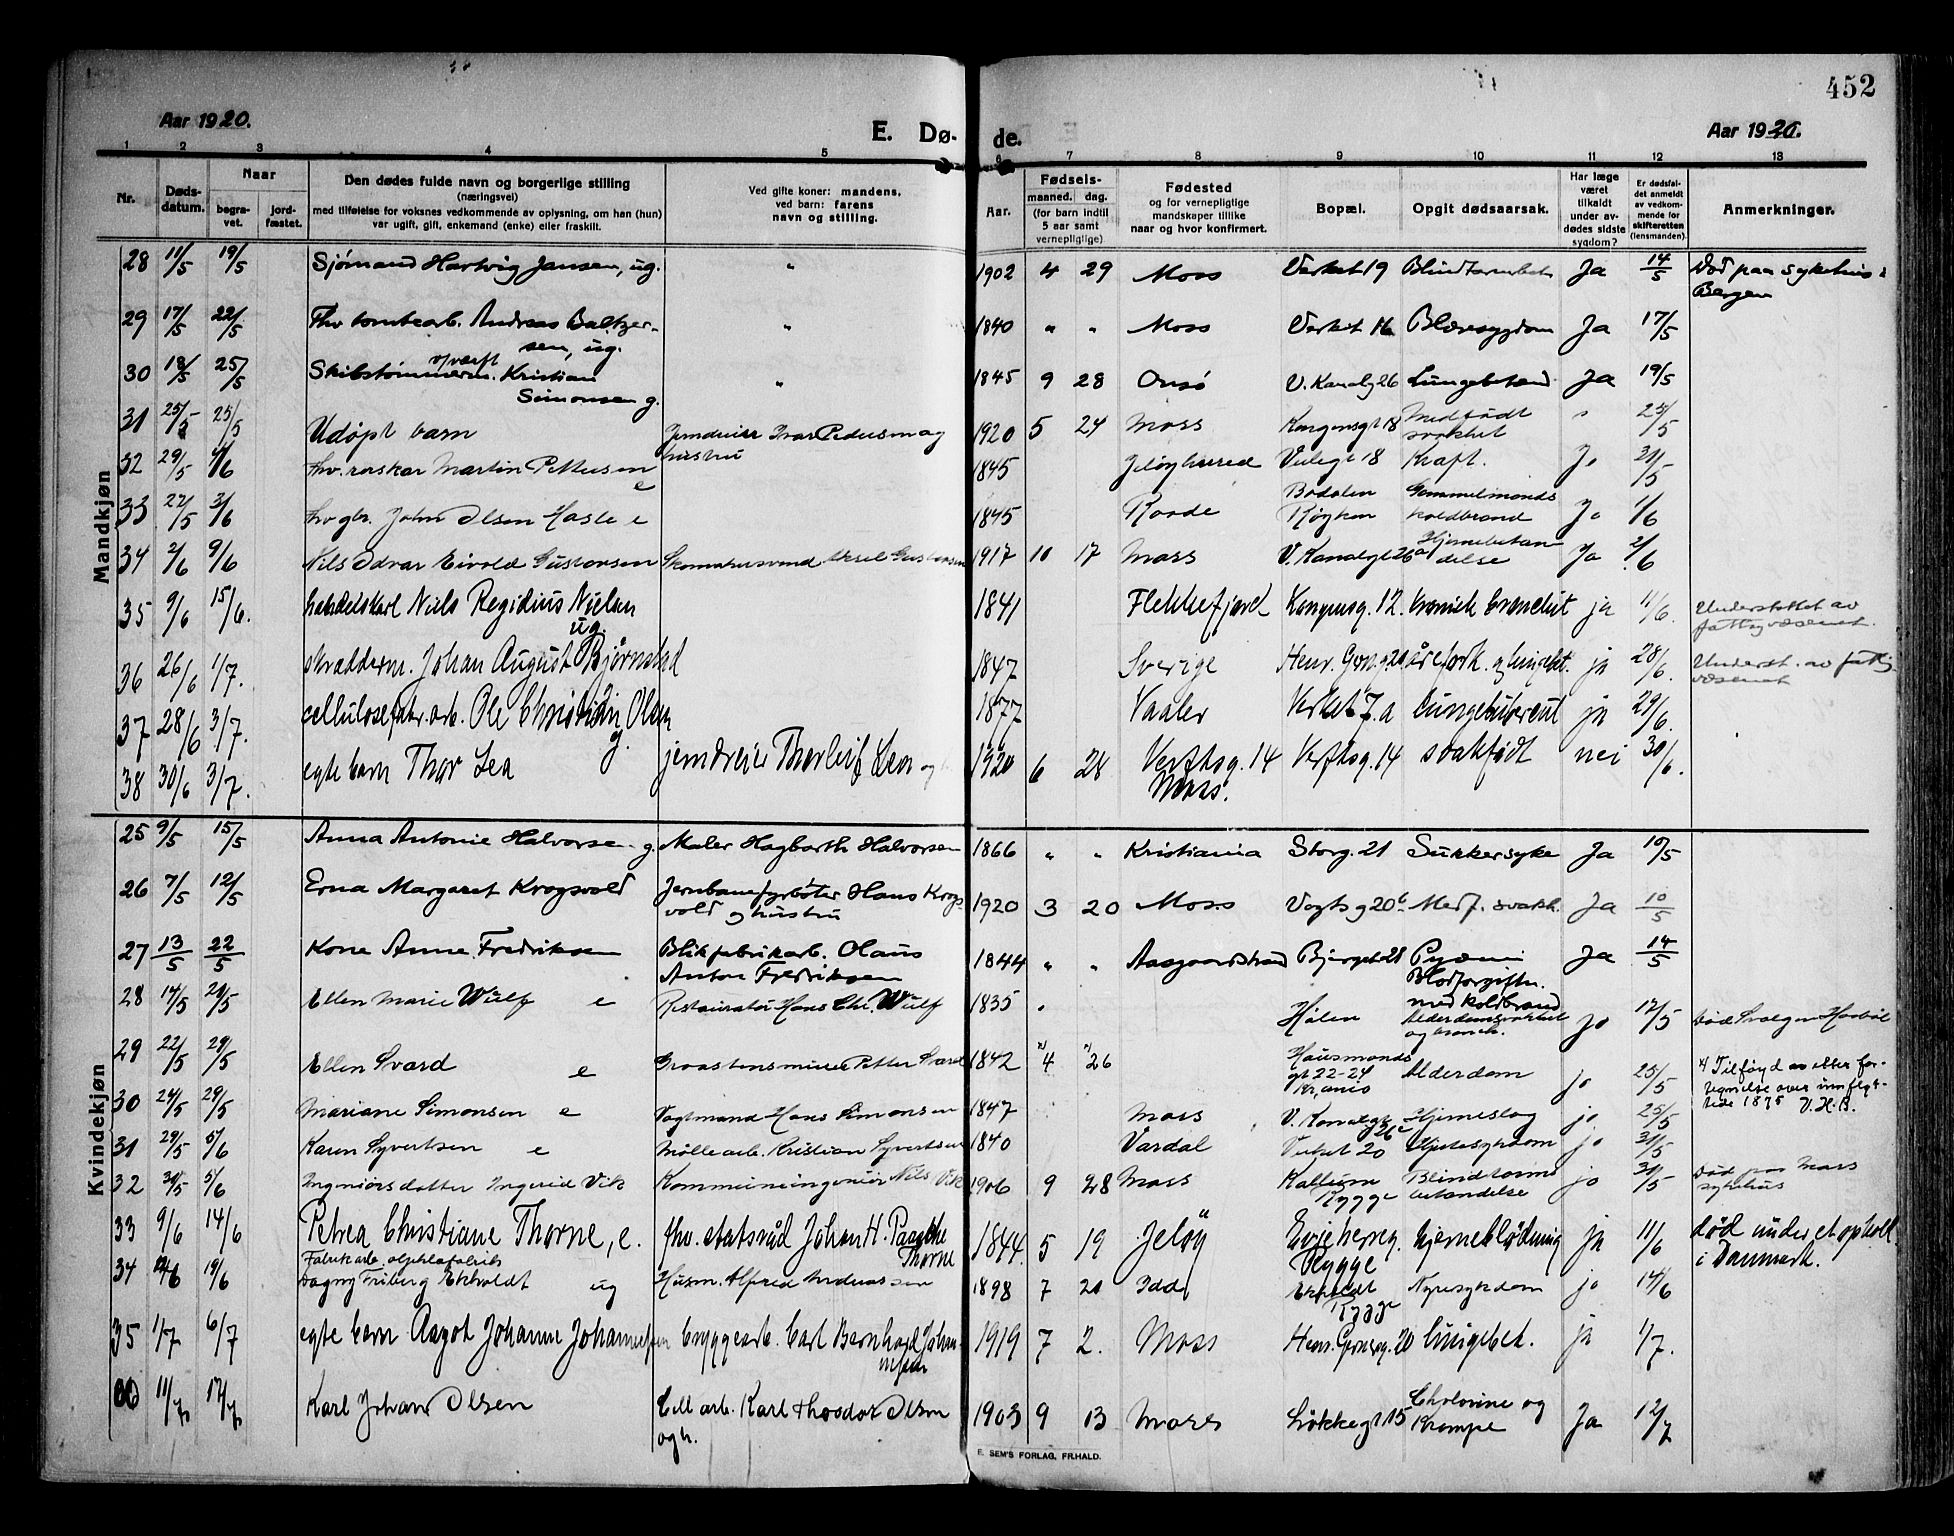 452
Aar 1920.
E. Dø- de.
Aar 1920.
1 2 3 4 5 6 7 8 9 10 11 12 13
Nr.
Døds-
datum.
Naar
begra-
vet.
jord-
fæstet.
Den dødes fulde navn og borgerlige stilling
(næringsvei)
med tilføielse for voksnes vedkommende av oplysning, om han (hun)
var ugift, gift, enkemand (enke) eller fraskilt.
Ved gifte koner: mandens,
ved barn: farens
navn og stilling.
Aar.
Fødsels-
maaned. dag.
(for barn indtil
5 aar samt
vernepligtige)
Fødested
og for vernepligtige
mandskaper tillike
naar og hvor konfirmert.
Bopæl.
Opgit dødsaarsak.
Har læge
været
tilkaldt
under av-
dødes sidste
sygdom?
Er dødsfal-
det anmeldt
av vedkom-
mende for
skifteretten
(lensmanden).
Anmerkninger.
Mandkjøn
28 11/5 19/5 Sjømand Hartvig Jansen, ug. " 1902 4 29 Moss Verket 19 Ja 14/5 Død paa sykehus i
Bergen
29 17/5 22/5 Fhv. tomtearb. Andreas Baltzer-
sen, ug. " 1840 " " Moss Verket 16 Blæresygdom Ja 17/5
30 18/5 25/5 Skibstømmerm. Kristian
Simonsen g. " 1845 9 28 Onsø V. Kanalg 26 Lungebetænd Ja 19/5
31 25/5 25/5 Udøpt barn Jerndreier Ivar Pedersen og
hustru 1920 5 24 Moss Kongensgt 18 Medfødt
svakhet " 25/5
32 29/5 4/6 fhv. Martin Pettersen
e 1845 Jeløy herred 18 Kræft. Jo 31/5
33 27/5 3/6 fhv gbr. John Olsen Hasle e 1845 Raade Bodalen
Røyken Gammelmands
koldbrand Jo 1/6
34 2/6 9/6 Nils Odvar Eivold Gustavsen Aksel Gustavsen 1917 10 17 Moss V. Kanalgt 26 a Hjernebetæn
delse Ja 2/6
35 9/6 15/6. handelskarl Niels Regidius Nielsen
ug. 1841 Flekkefjord Kongensg. 12. kronisk bronchit ja 11/6 Understøttet av
fattigvæsenet.
36 26/6 1/7. skrædderm. Johan August Bjørnstad 1847 Sverige Henr. Gernersg 20 årefork. og lungebet. ja 28/6. Underst. av fattig-
væsenet
37 28/6 3/7. cellulosefabr.arb. Ole Christian Olsen
g. 1877 Vaaler Verket 7.a Lungetuberkul ja 29/6.
38 30/6 3/7. egte barn Thor Lea jerndreier Thorleif Lea og h 1920 6 28 Verftsg. 14
Moss. Verftsg. 14 svakfødt nei 30/6.
Kvindekjøn
25 9/5 15/5 Anna Antonie Halvorsen g. Maler Hagbarth Halvorsen 1866 " " Kristiania Storg. 21 Sukkersyke Ja 10/5
26 7/5 12/5 Erna Margaret Krogsvold Jernbanefyrbøter Hans Krogs-
vold og hustru 1920 3 20 Moss Vogts g 20 b Medf. svakh. Ja 10/5
27 13/5 22/5 Kone Anne Fredriksen Blikfabrikarb. Olaus
Anton Fredriksen 1844 " " Aasgaardstrand Bjerget 28 Pyæmi
Blodforgiftn.
med koldbrand Ja 14/5
28 14/5 20/5 Ellen Marie Wulf e Restauratør Hans Chr. Wulf 1835 " Hølen Alderdomssvakhet
og bronch. Jo 17/5 Død Hobøl
29 22/5 29/5 Ellen Sværd e Graastensminer Petter Sværd 1842 x) 4 x) 26 Hausmands
gt 22-24
Kr.ania Alderdom jo 25/5 x) Tilføyd av etter for-
tegnelse over innflyt-
tede 1875 V.H.B.
30 24/5 29/5 Mariane Simonsen e Vogtmand Hans Simonsen 1847 Moss V. Kanalgt
26 c Hjerneslag jo 25/5
31 29/5 5/6 Karen Syvertsen e Møllearb. Kristian Syvertsen 1840 Vardal Verket 20 Hjertesykdom jo 31/5
32 30/5 5/6 Ingeniørsdatter Ingerid Vik Kommuneingeniør Nils Vik 1906 9 28 Moss Kallum
Rygge Blindtarms
betændelse jo 31/5 Død paa Moss
sykehus
33 9/6 14/6 Petrea Christiane Thorne, e. fhv. statsråd Johan H. Paasche
Thorne 1844. 5 19 Jeløy Evje herreg.
Rygge hjerneblødning ja 11/6 død under et ophold
i Danmark.
34 14/6 19/6 Fabrikarb.
Dagny Friberg Ekholdt ug Husm. Alfred Andreassen 1898 7 20 Idd Ekholdt
Rygge Nyresykdom jo 14/6
35 1/7 6/7 egte barn Aagot Johanne Johannesen bryggearb. Carl Bernhard Johan-
nesen 1919 7 2. Moss Henr. Gernersg. 20 lungebet. ja 1/7.
11/7 17/7 Karl Johan Olsen Cell arb. Karl Theodor Olsen
og h. 1903 9 13 Moss Løkkegt 15 Cholerine og
Krampe Ja 12/7
E. SEM'S FORLAG, FR.HALD.